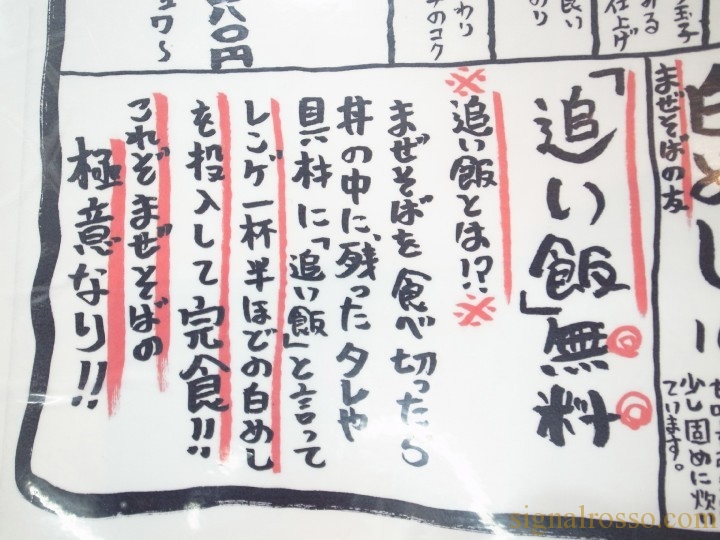 まぜそばの友
白めし
少し固めに炊い
ています。
玉子
みる
仕上げ
良い
のり
わり
のコク
八〇円
ュワ〜
「追い飯」無料
※追い飯とは!?※
まぜそばを食べ切ったら
丼の中に、残ったタレや
具材に「追い飯」と言って
レンゲ一杯半ほどの白めし
を投入して完食!!
これぞまぜそばの
極意なり!!
signalrosso.com